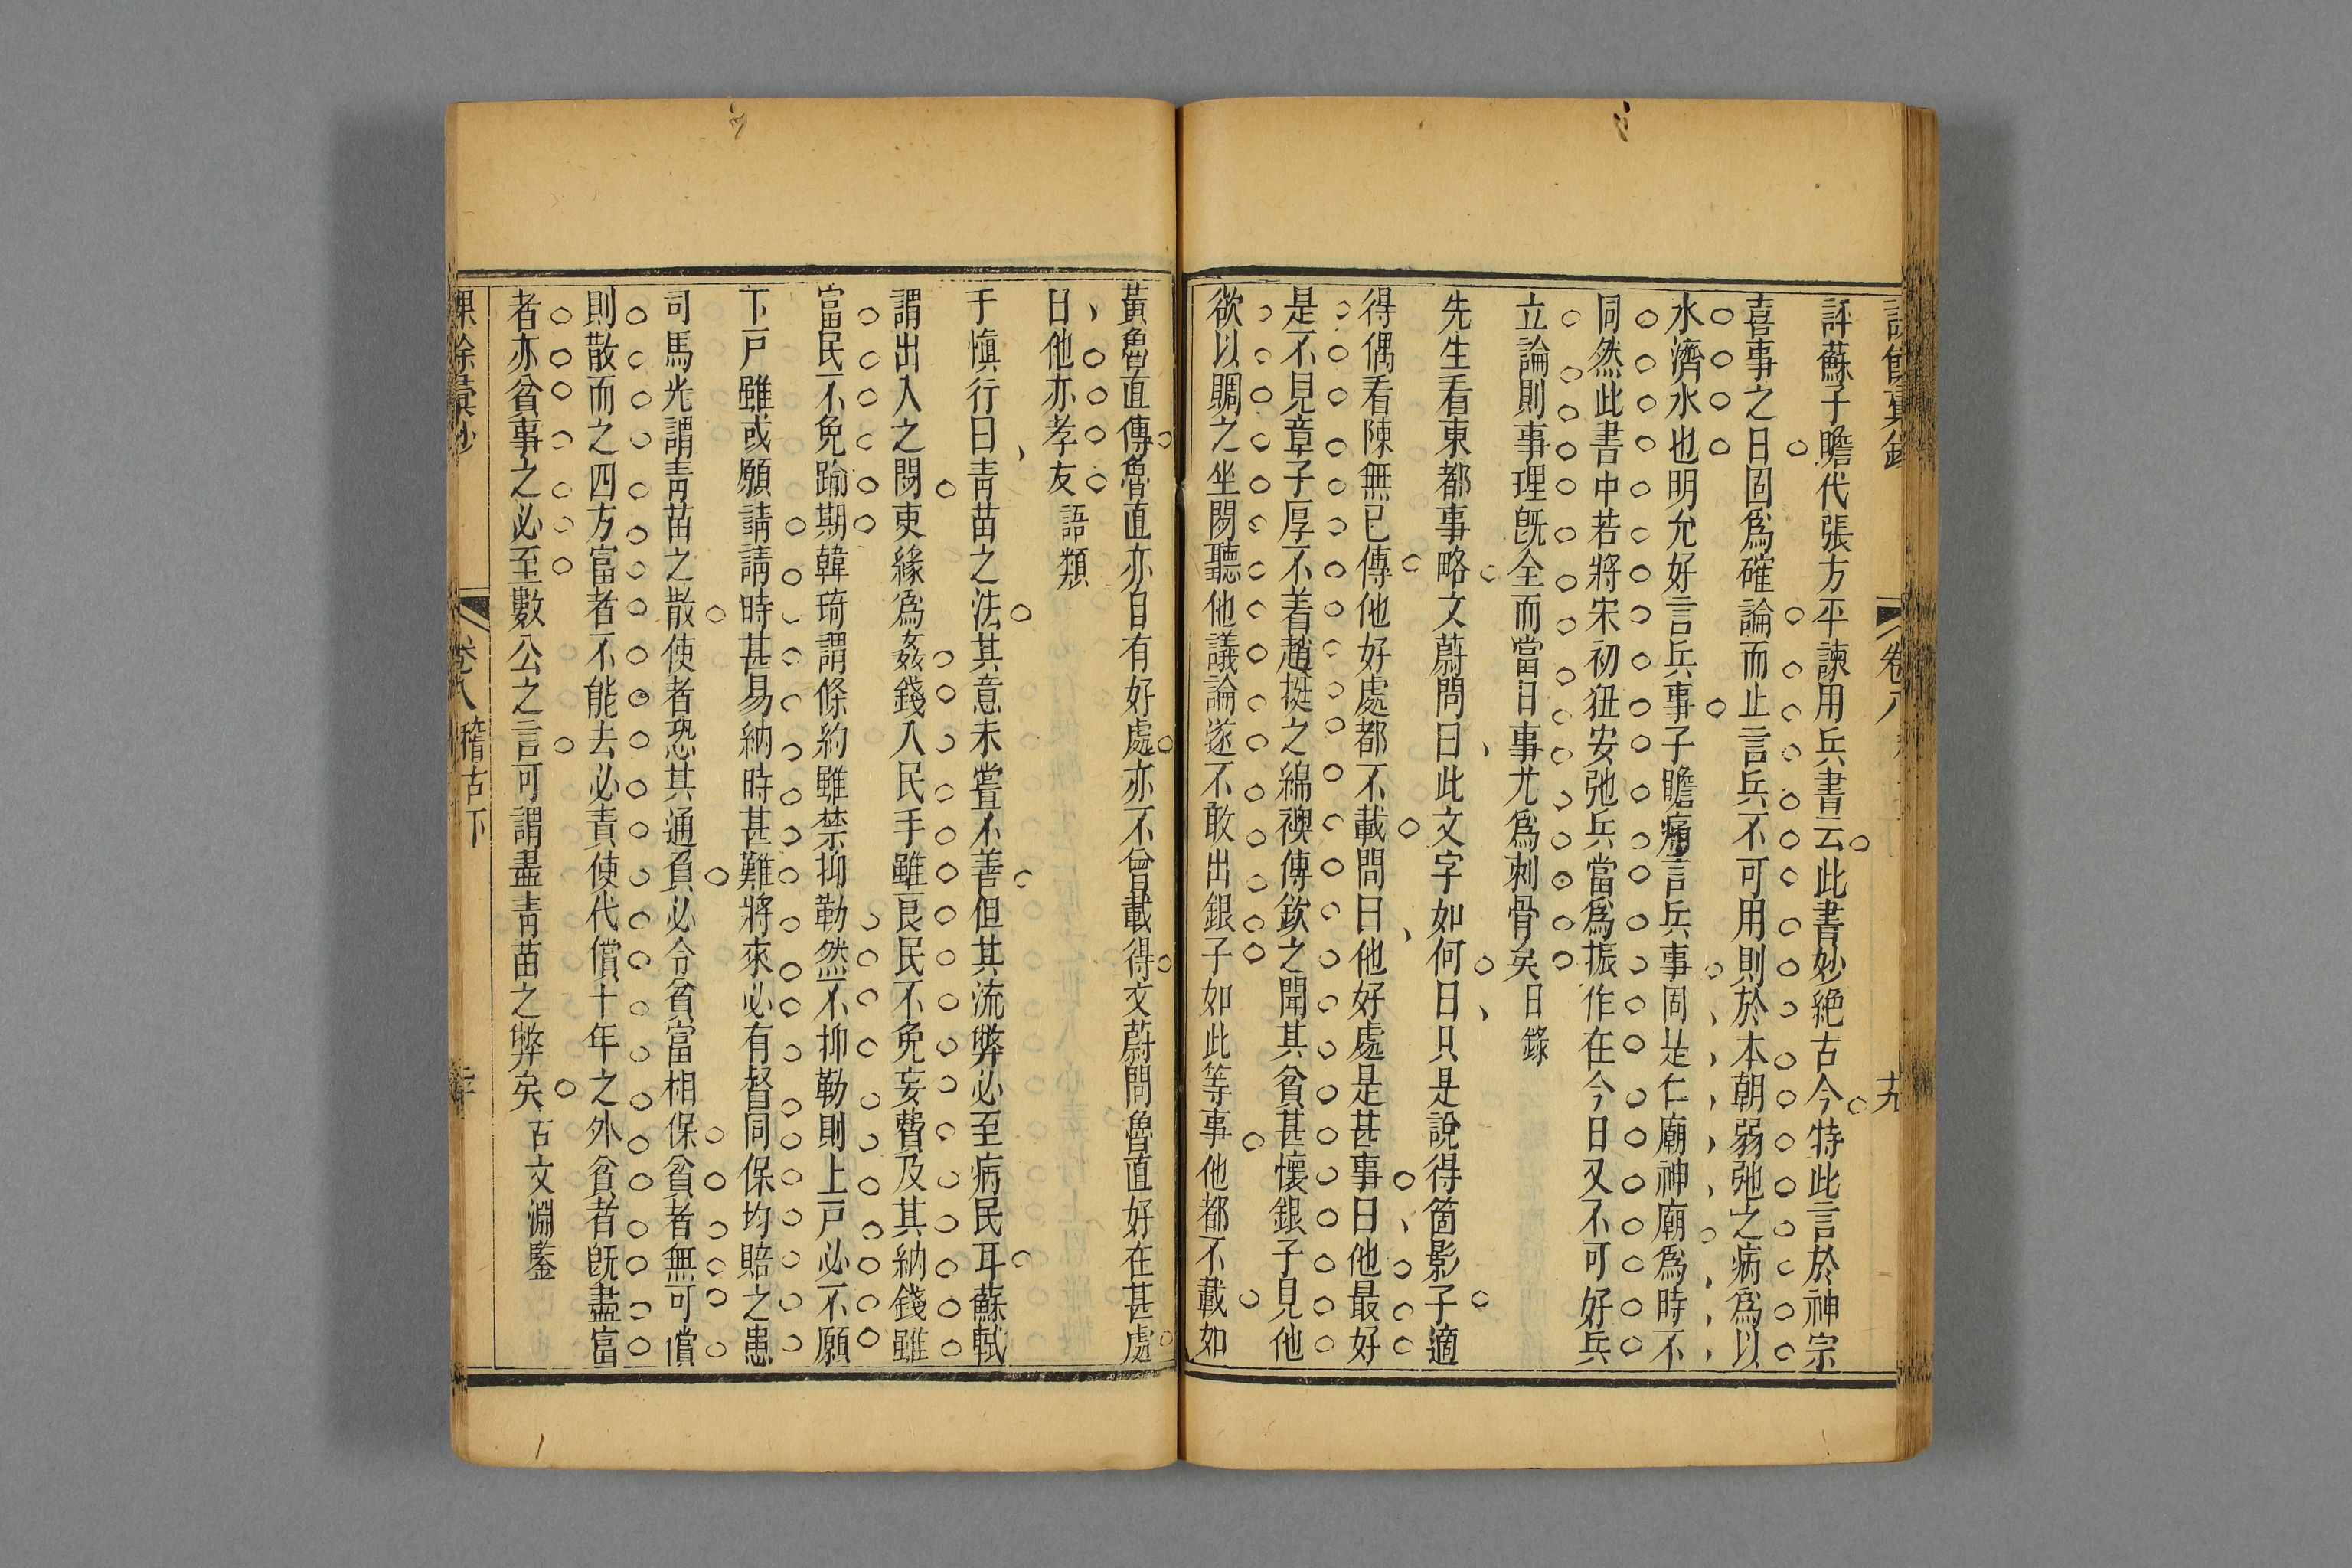 卷八
十九
評蘇子瞻代張方平諫用兵書云此書妙絕古今特此言於神宗
喜事之日固爲確論而止言兵不可用則於本朝弱弛之病爲以
水濟水也明允好言兵事子瞻痛言兵事固是仁廟神廟爲時不
同然此書中若將宋初狃安弛兵當爲振作在今日又不可好兵
立論則事理旣全而當日事尤爲刺骨矣日錄
先生看東都事略文蔚問曰此文字如何曰只是說得箇影子適
得偶看陳無已傳他好處都不載問曰他好處是甚事曰他最好
是不見章子厚不着趙挺之綿襖傅欽之聞其貧甚懷銀子見他
欲以賙之坐閒聽他議論遂不敢出銀子如此等事他都不載如
黃魯直傳魯直亦自有好處亦不曾載得文蔚問魯直好在甚處
曰他亦孝友語類
于愼行曰靑苗之法其意未嘗不善但其流弊必至病民耳蘇軾
謂出入之閒吏緣爲姦錢入民手雖良民不免妄費及其納錢雖
富民不免踰期韓琦謂條約雖禁抑勒然不抑勒則上戸必不願
下戸雖或願請請時甚易納時甚難將來必有督同保均賠之患
司馬光謂靑苗之散使者恐其逋負必令貧富相保貧者無可償
則散而之四方富者不能去必責使代償十年之外貧者旣盡富
者亦貧事之必至數公之言可謂盡靑苗之弊矣古文淵鑒
課餘彙鈔
卷八
稽古下
二十